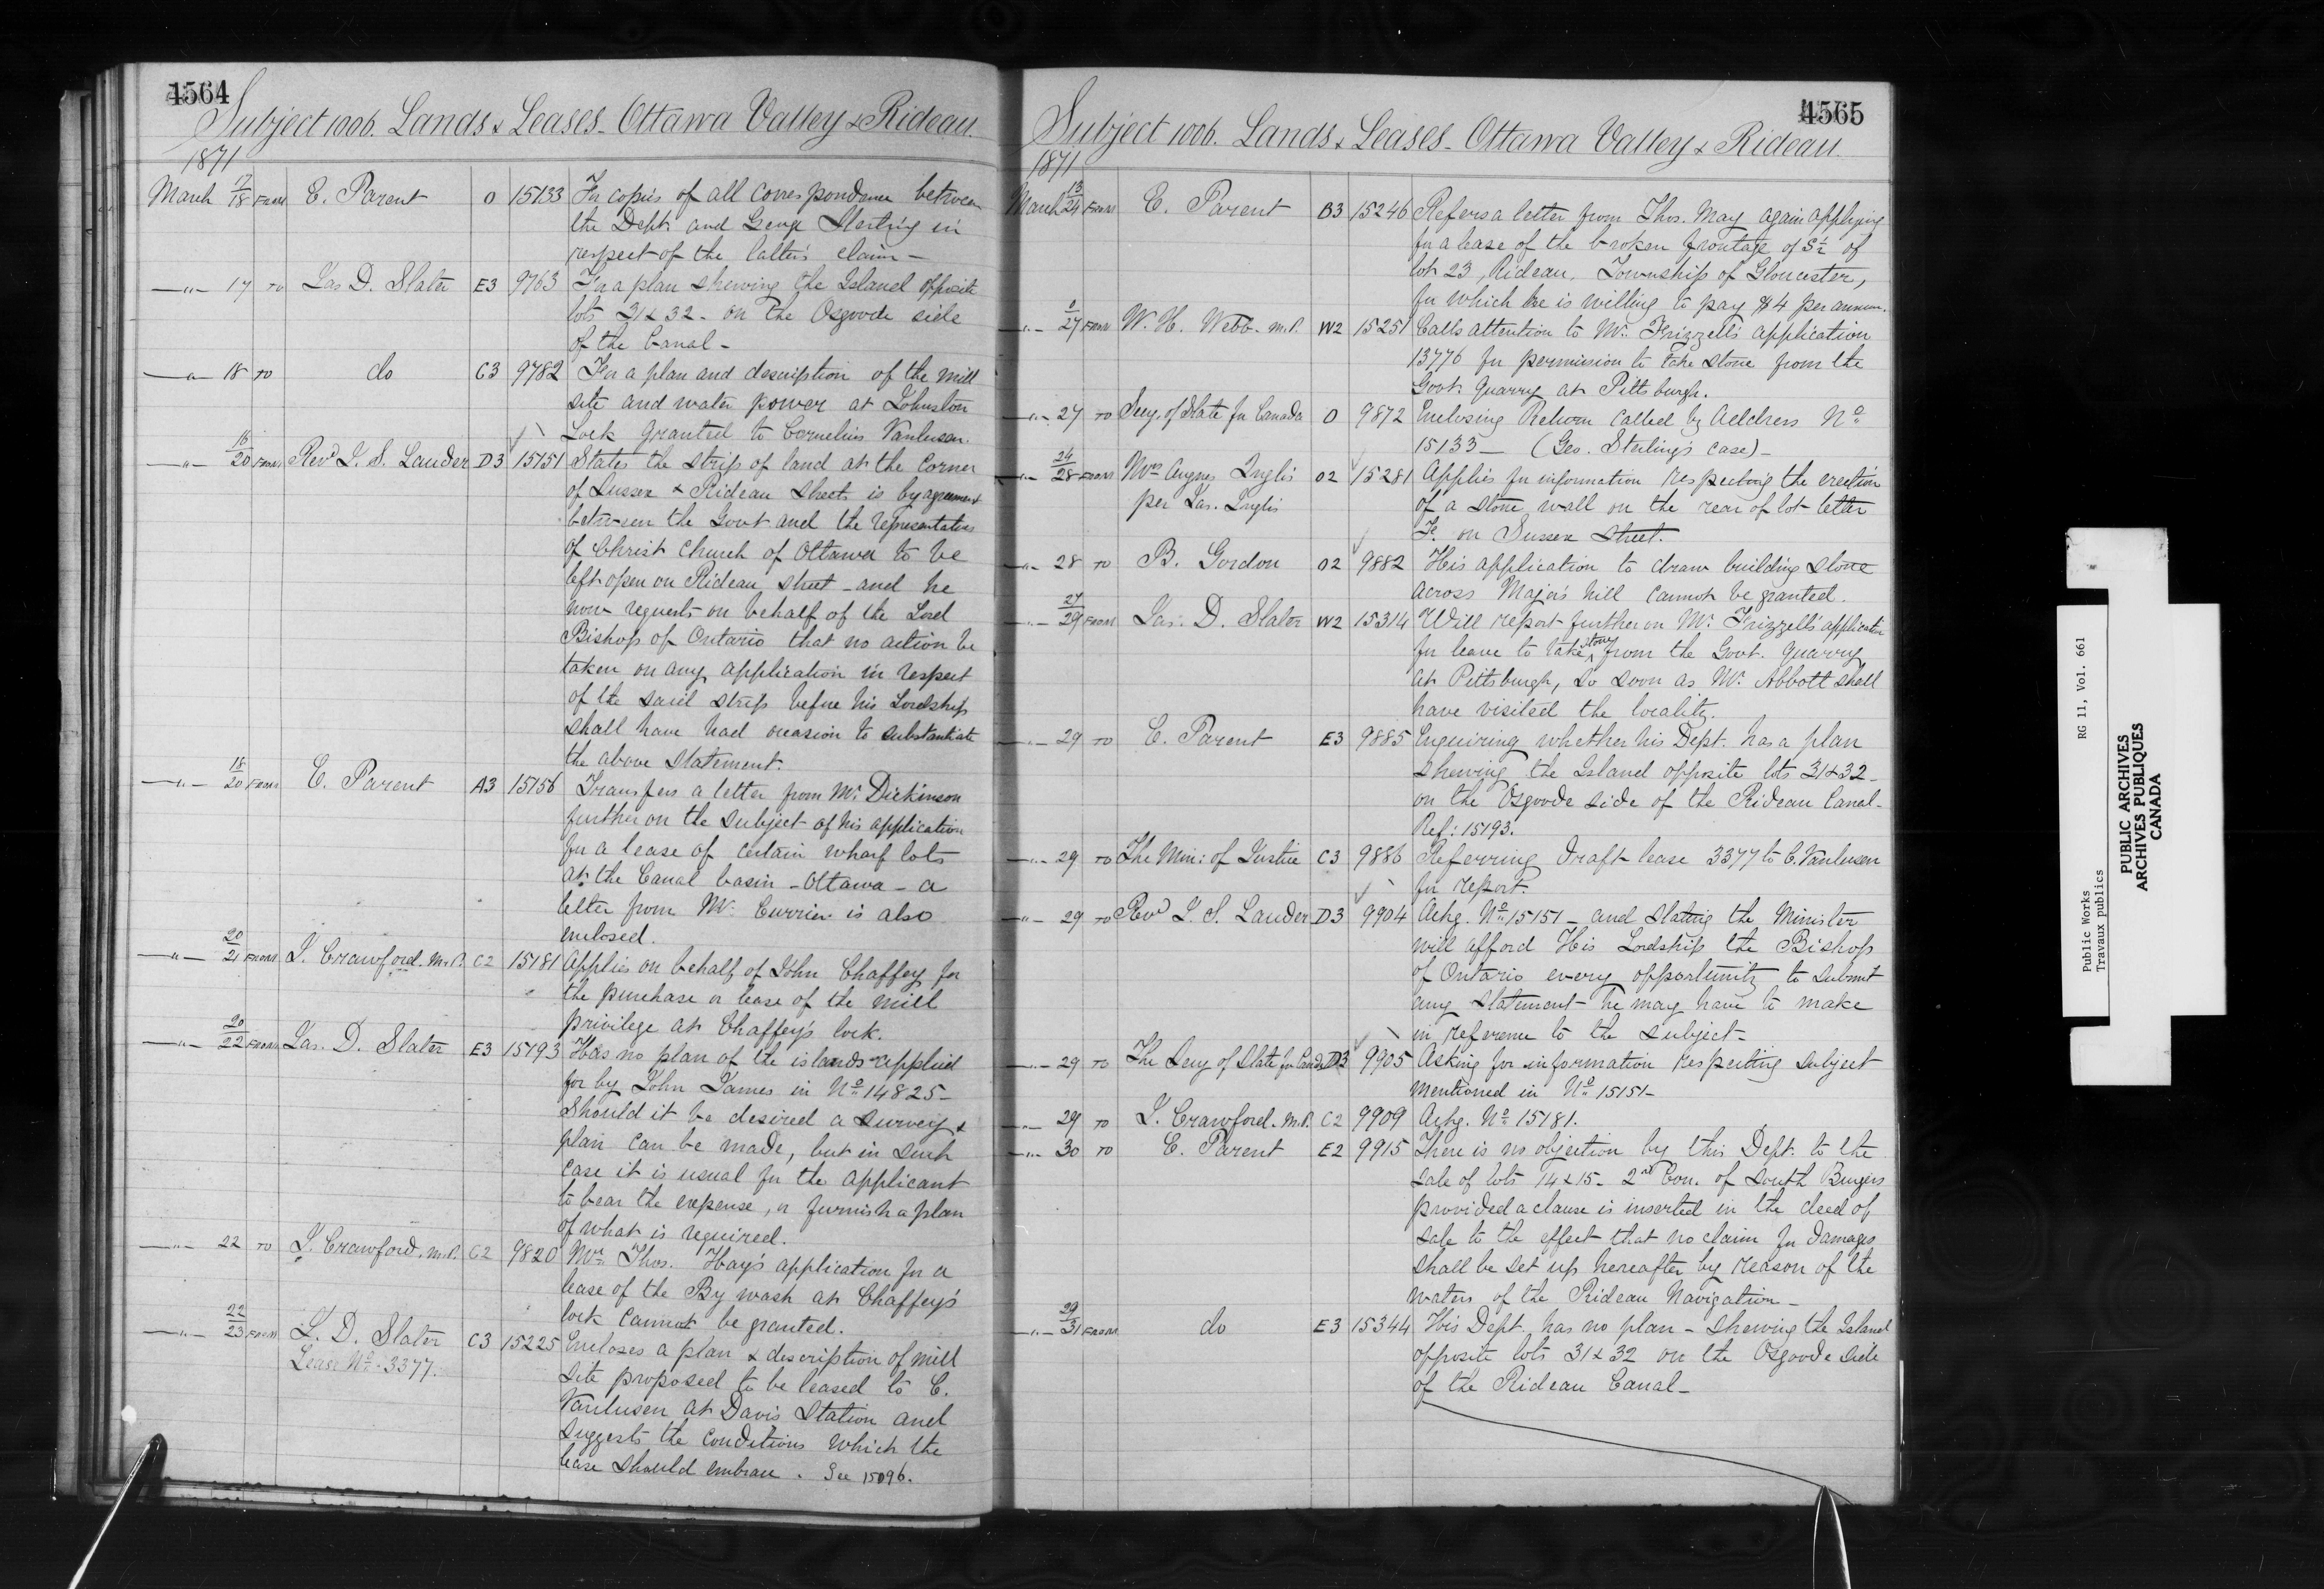 4564
Subject 1006. Lands & Leases - Ottawa Valley & Rideau.
1871
March 17/18 FROM E. Parent O 15133 For copies of all correspondence between
the Dept. and George Sterling in
respect of the latter's claim -
-"- 17 TO Jas D. Slater E3 9763 For a plan shewing the Island opposite
lots 31 & 32 - on the Osgoode side
of the Canal -
-"- 18 TO do C3 9782 For a plan and description of the mill
site and water power at Johnston
Lock granted to Cornelius Vanlusen.
-"- 16/20 FROM Revd J. S. Lauder D3 15151 States the strip of land at the corner
of Sussex & Rideau Streets is by agreement
between the Govt and the representatives
of Christ Church of Ottawa to be
left open on Rideau street - and he
now requests on behalf of the Lord
Bishop of Ontario that no action be
taken on any application in respect
of the said strip before his Lordship
shall have had occasion to substantiate
the above statement.
-"- 18/20 FROM E. Parent A3 15156 Transfers a letter from Mr. Dickinson
further on the subject of his application
for a lease of certain wharf lots
at the Canal basin - Ottawa - a
letter from Mr. Currier is also
enclosed.
-"- 20/21 FROM J. Crawford. M.P. C2 15181 Applies on behalf of John Chaffey for
the purchase or lease of the mill
privilege at Chaffey's lock.
-"- 20/22 FROM Jas. D. Slater E3 15193 Has no plan of the islands applied
for by John James in No 14825 -
Should it be desired a survey &
plan can be made, but in such
case it is usual for the applicant
to bear the expense, or furnish a plan
of what is required.
-"- 22 TO J. Crawford. M.P. C2 9820 Mr. Thos. Hay's application for a
lease of the By wash at Chaffey's
lock cannot be granted.
-"- 22/23 FROM J. D. Slater C3 15225 Encloses a plan & description of mill
Lease No. 3377. site proposed to be leased to C.
Vanlusen at Davis Station and
suggests the conditions which the
lease should embrace. See 15096.
4565
Subject 1006. Lands & Leases - Ottawa Valley & Rideau.
1871
March 13/24 FROM E. Parent B3 15246 Refers a letter from Thos. May again applying
for a lease of the broken frontage of S½ of
lot 23, Rideau, Township of Gloucester,
for which he is willing to pay $4 per annum.
-"- 27 FROM W. H. Webb - M.P. W2 15251 Calls attention to Mr. Frizzell's application
13776 for permission to take stone from the
Govt. quarry at Pittsburgh.
-"- 27 TO Secy. of State for Canada O 9872 Enclosing Return called by Address No
15133 - (Geo. Sterling's case) -
-"- 24/28 FROM Mrs Augnes Inglis O2 15281 Applies for information respecting the erection
per Jas. Inglis of a stone wall on the rear of lot letter
F. on Sussex Street.
-"- 28 TO B. Gordon O2 9882 His application to draw building stone
across Major's hill cannot be granted.
-"- 27/29 FROM Jas. D. Slater W2 15314 Will report further on Mr. Frizzell's application
for leave to take stone from the Govt. quarry
at Pittsburgh, so soon as Mr. Abbott shall
have visited the locality.
-"- 29 TO E. Parent E3 9885 Enquiring whether his Dept. has a plan
shewing the Island opposite lots 31 & 32 -
on the Osgoode side of the Rideau Canal -
Ref: 15193.
-"- 29 TO The Min: of Justice C3 9886 Referring draft lease 3377 to C. Vanlusen
for report.
-"- 29 TO Revd J. S. Lauder D3 9904 Ackg. No 15151 - and stating the Minister
will afford His Lordship the Bishop
of Ontario every opportunity to submit
any statement he may have to make
in reference to the subject -
-"- 29 TO The Secy of State for Canada D3 9905 Asking for information respecting subject
mentioned in No 15151 -
-"- 29 TO J. Crawford. M.P. C2 9909 Ackg. No 15181.
-"- 30 TO E. Parent E2 9915 There is no objection by this Dept. to the
sale of lots 14 & 15 - 2nd Con. of South Burgess
provided a clause is inserted in the deed of
sale to the effect that no claim for damages
shall be set up hereafter by reason of the
waters of the Rideau Navigation -
-"- 29/31 FROM do E3 15344 His Dept. has no plan - shewing the Island
opposite lots 31 & 32 on the Osgoode side
of the Rideau Canal -
Public Works RG 11, Vol. 661
Travaux publics
PUBLIC ARCHIVES
ARCHIVES PUBLIQUES
CANADA